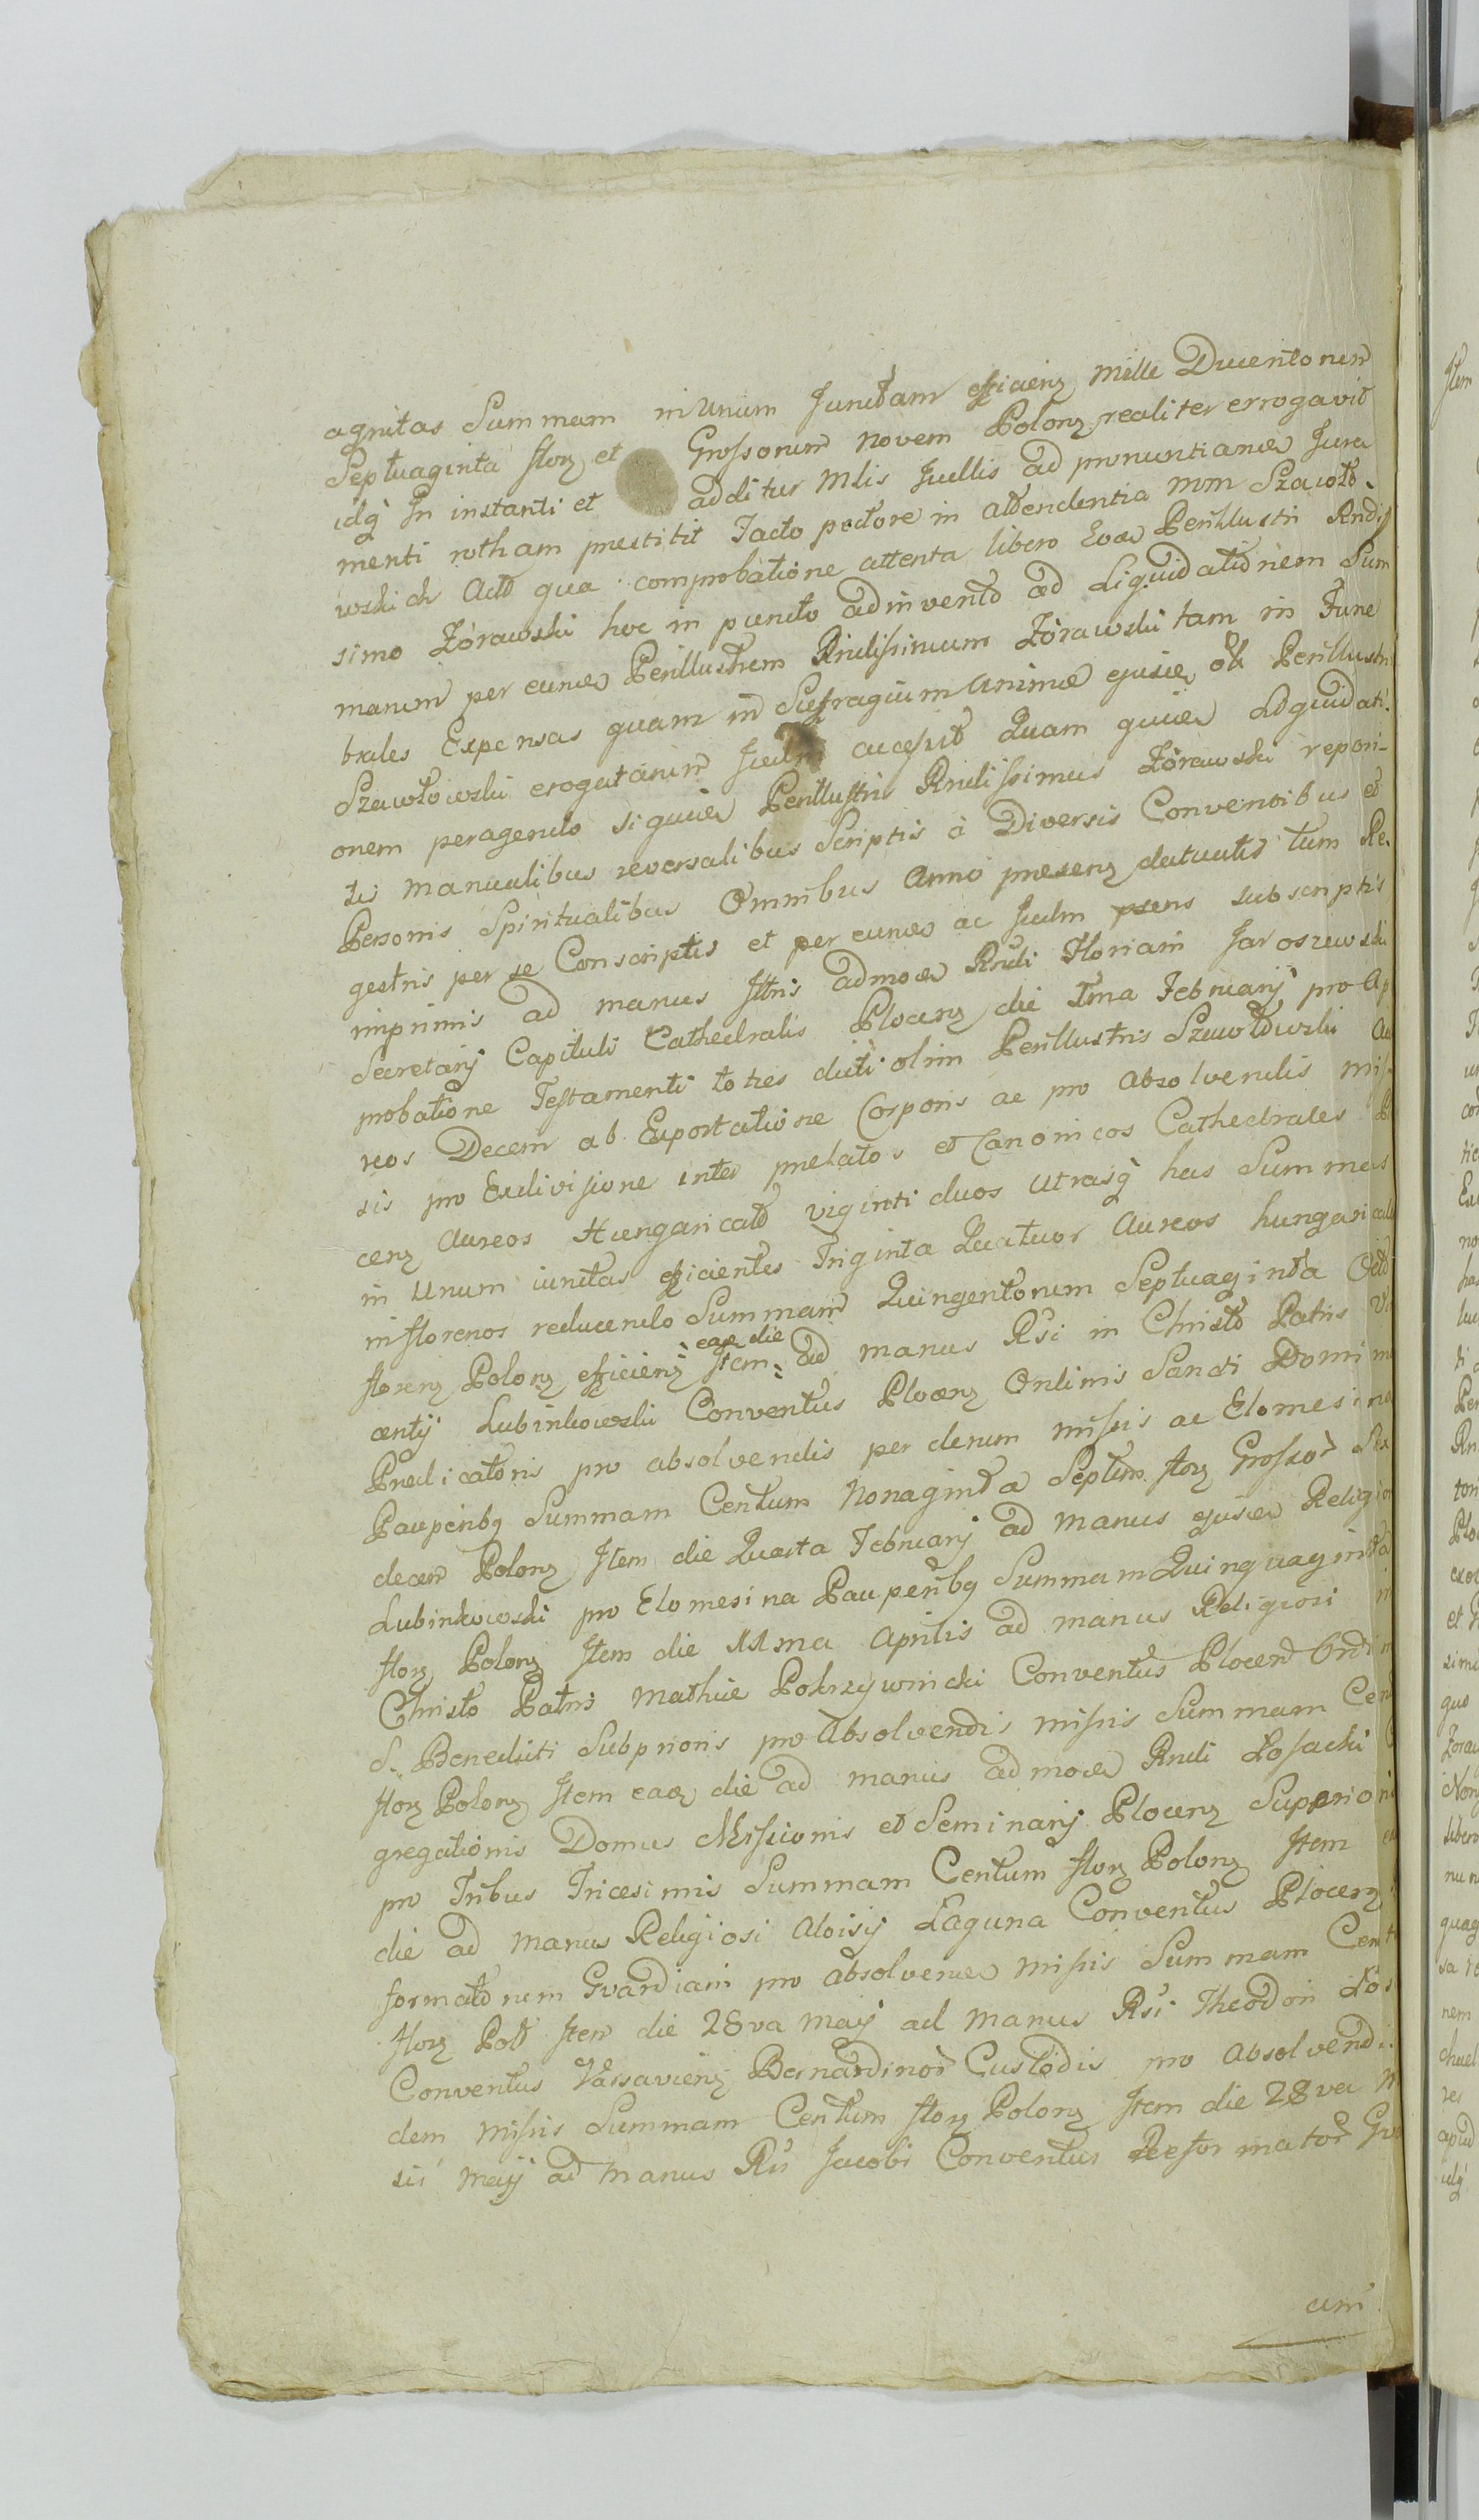 agnitas Summam in Unum Junctam efficienz Mille Ducentorum
Septuaginta florz et Grossorum novem Polonz realiter errogavit
idq In instanti et additur Mlis Juellis ad pronuntiande Jura
menti rotham prestitit Tacto pectore in attendentia Mm Szawło-
wskich Actor qua comprobatione attenta libero Eode Perillustri Rndis
simo Żórawski hoc in puncto adinvento ad Liquidationem Sum
marum per eunde Perillustrem Rndissimum Żórawski tam in Fune
brales Expensas quam in Sufragium Animæ ejusde olim Perillustri
Szawłowski erogatarum Judm accessit Quam quide Liquidati-
onem peragendo siquide Perillustris Rndissimus Żórawski reposi-
tis Manualibus reversalibus Scriptis à Diversis Conventibus et
Personis Spiritualibus Omnibus Anno presenz datuatis tum Re-
gestris per se Conscriptis et per eunde ac Judm psens subscriptis
inprimis ad manus Illtris admode Rndi Floriani Jaroszewski
Secretarij Capituli Cathedralis Plocenz die 1ma Februarij pro Ap
probatione Testamenti toties dicti olim Perillustris Szawłowski Au
reos Decem ab Exportatione Corporis ac pro absolvendis Mis-
sis pro Exdivisione inter prelatos et Canonicos Cathedrales Plo
cenz Aureos Hungaricales viginti duos Utrasq has Summas
in Unum iunctas efficientes Triginta Quatuor Aureos hungarical
in florenos reducendo Summam Quingentorum Septuaginta Octo
florenz Polonz efficienz Item eade die ad manus Rsi in Christo Patris Vin
centij Lubinkowski Conventus Plocenz Ordinis Sancti Domini
Predicatoris pro absolvendis per denum missis ac Elomesina
Pauperibq Summam Centum Nonaginta Septem florz Grossor Sex
decem Polonz Item die Quarta Februarij ad manus ejusde Religio
Lubinkowski pro Elomesina Pauperibq Summam Quinquaginta
florz Polonz Item die 11ma Aprilis ad manus Religiosi in
Christo Patris Mathiæ Pokrzywnicki Conventus Plocenz Ordin
S. Benedicti Subprioris pro Absolvendis missis Summam Cen
florz Polonz Item eade die ad manus admode Rndi Łosacki
gregationis Domus Missionis et Seminarij Plocenz Supperio
pro Tribus Tricesimis Summam Centum florz Polonz Item
die ad Manus Religiosi Aloisij Łaguna Conventus Plocenz
formatorum Gvardiani pro absolvende missis Summam Cent
florz Pol Item die 28va Maij ad manus Rsi Theodori
Conventus Varsavienz Bernardinor Custodis pro absolvendi
dem Missis Summam Centum florz Polonz Item die 28va
sis Maij ad Manus Rsi Jacobi Conventus Reformator